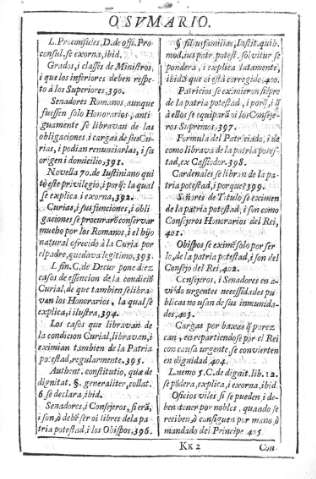 O SVMARIO.
L. Proconsules, D. de offi. Pro-
consul. se exorna, ibid.
Grados, i classes de Ministros,
i que los inferiores deben respe-
to à los Superiores. 390.
Senadores Romanos, aunque
fuessen solo Honorarios, anti-
guamente se libravan de las
obligaciones i cargas de sus Cu-
rias, i podian renunciarlas, i su
origen i domicilio, 391.
Novella 70. de Iustiniano qui
tò este privilegio, i porq̃; la qual
se explica i exorna, 392.
Curias, i sus funciones, i obli-
gaciones se procurarõ conservar
mucho por los Romanos, i el hijo
natural ofrecido à la Curia por
el padre, quedava legitimo, 393.
L. fin. C. de Decur pone diez
casos de essencion de la condiciõ
Curial, de que tambien se libra-
van los Honorarios, la qual se
explica, i ilustra, 394.
Los casos que libravan de
la condicion Curial, libravan, i
eximian tambien de la Patria
potestad, regularmente, 395.
Authent. constitutio, quæ de
dignitat. §. generaliter, collat.
6. se declara, ibid.
Senadores, i Consejeros, si erã,
i son, ò debẽ ser oi libres de la pa-
tria potestad, i los Obispos, 396.
§ filiusfamilias, Instit. quib.
mod. ius patr. potest. solvitur se
pondera, i explica latamente,
ibid si que oi està corregido, 400.
Patricios se eximieron siẽpre
de la patria potestad, i porq̃, i q̃
à ellos se equiparã oi los Conseje-
ros Supremos, 397.
Formula del Patriciado, i de
como librava de la patria potes-
tad, ex Cassiodor. 398.
Cardenales se libran de la pa-
tria potestad, i porque, 399.
Señores de Titulo se eximen
de la patria potestad, i son como
Consejeros Honorarios del Rei,
401.
Obispos se eximẽ solo por ser-
lo, de la patria potestad, i son del
Consejo del Rei, 402.
Consejeros, i Senadores en a-
viẽdo urgentes necessidades pu-
blicas no usan de sus inmunida-
des, 403.
Cargas por baxas q̃ parez
can, en repartiendose por el Rei
con causa urgente, se convierten
en dignidad 404.
L. uemo 5. C. de dignit. lib. 12.
se põdera, explica, i exorna, ibid.
Oficios viles si se pueden i de-
ben tener por nobles, quando se
reciben, ò consiguen por mano, ò
mandado del Principe 405.
Kk 2